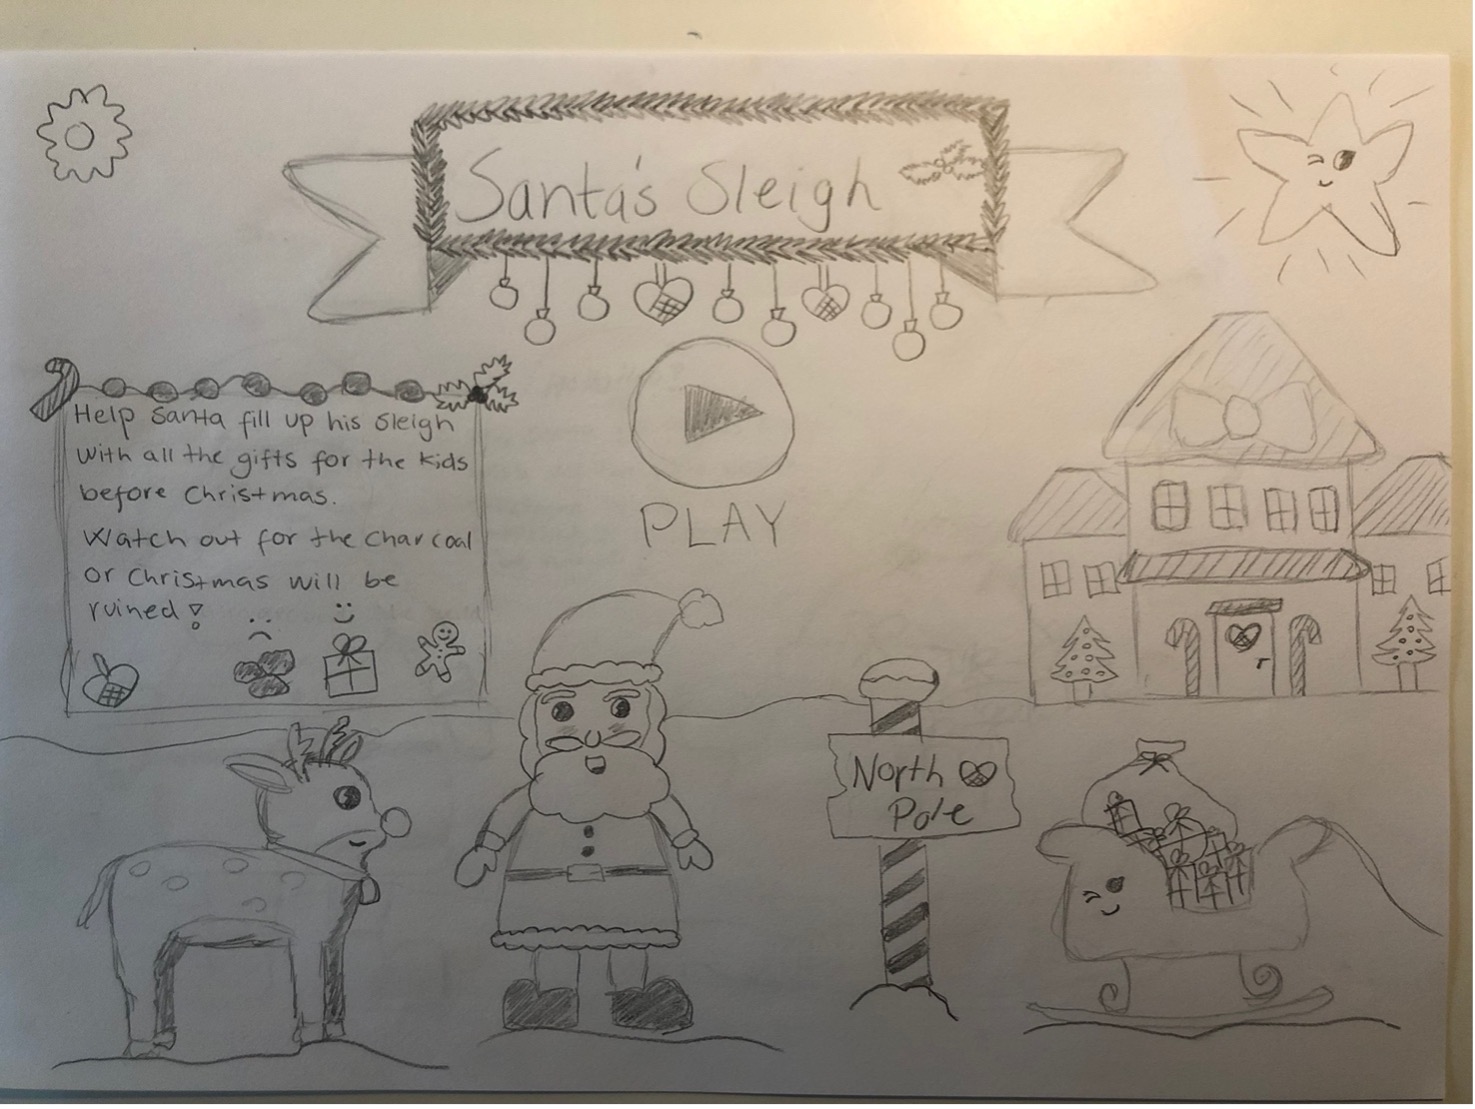 Santa's Sleigh
Help Santa fill up his sleigh
with all the gifts for the kids
before Christmas.
Watch out for the charcoal
or Christmas will be
ruined!
PLAY
North
Pole